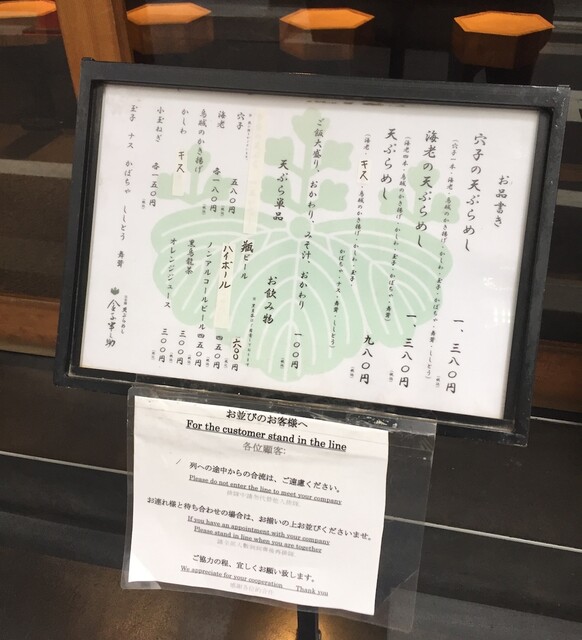 お品書き
穴子の天ぷらめし
一、三八〇円
(穴子一本・海老・烏賊のかき揚げ・かしわ・玉子・かぼちゃ・舞茸・ししとう)
海老の天ぷらめし
一、三八〇円
(海老四本・烏賊のかき揚げ・かしわ・玉子・かぼちゃ・舞茸・ししとう)
天ぷらめし
九八〇円
(海老・キス・烏賊のかき揚げ・かしわ・玉子
かぼちゃ・ナス・舞茸・ししとう)
ご飯大盛り、おかわり、みそ汁、おかわり
一〇〇円
天ぷら単品
穴子 五八〇円
海老
烏賊のかき揚げ 各一八〇円
かしわ キス
小玉ねぎ 各一五〇円
玉子 ナス かぼちゃ ししとう 舞茸
お飲み物
瓶ビール 六〇〇円
ハイボール 四五〇円
ノンアルコールビール 四五〇円
黒烏龍茶 三〇〇円
オレンジジュース 三〇〇円
金子半之助
お並びのお客様へ
For the customer stand in the line
各位顧客:
列への途中からの合流は、ご遠慮ください。
Please do not enter the line to meet your company
お連れ様と待ち合わせの場合は、お揃いの上お並びくださいませ。
If you have an appointment with your company
Please stand in line when you are together
ご協力の程、宜しくお願い致します。
We appreciate for your cooperation Thank you